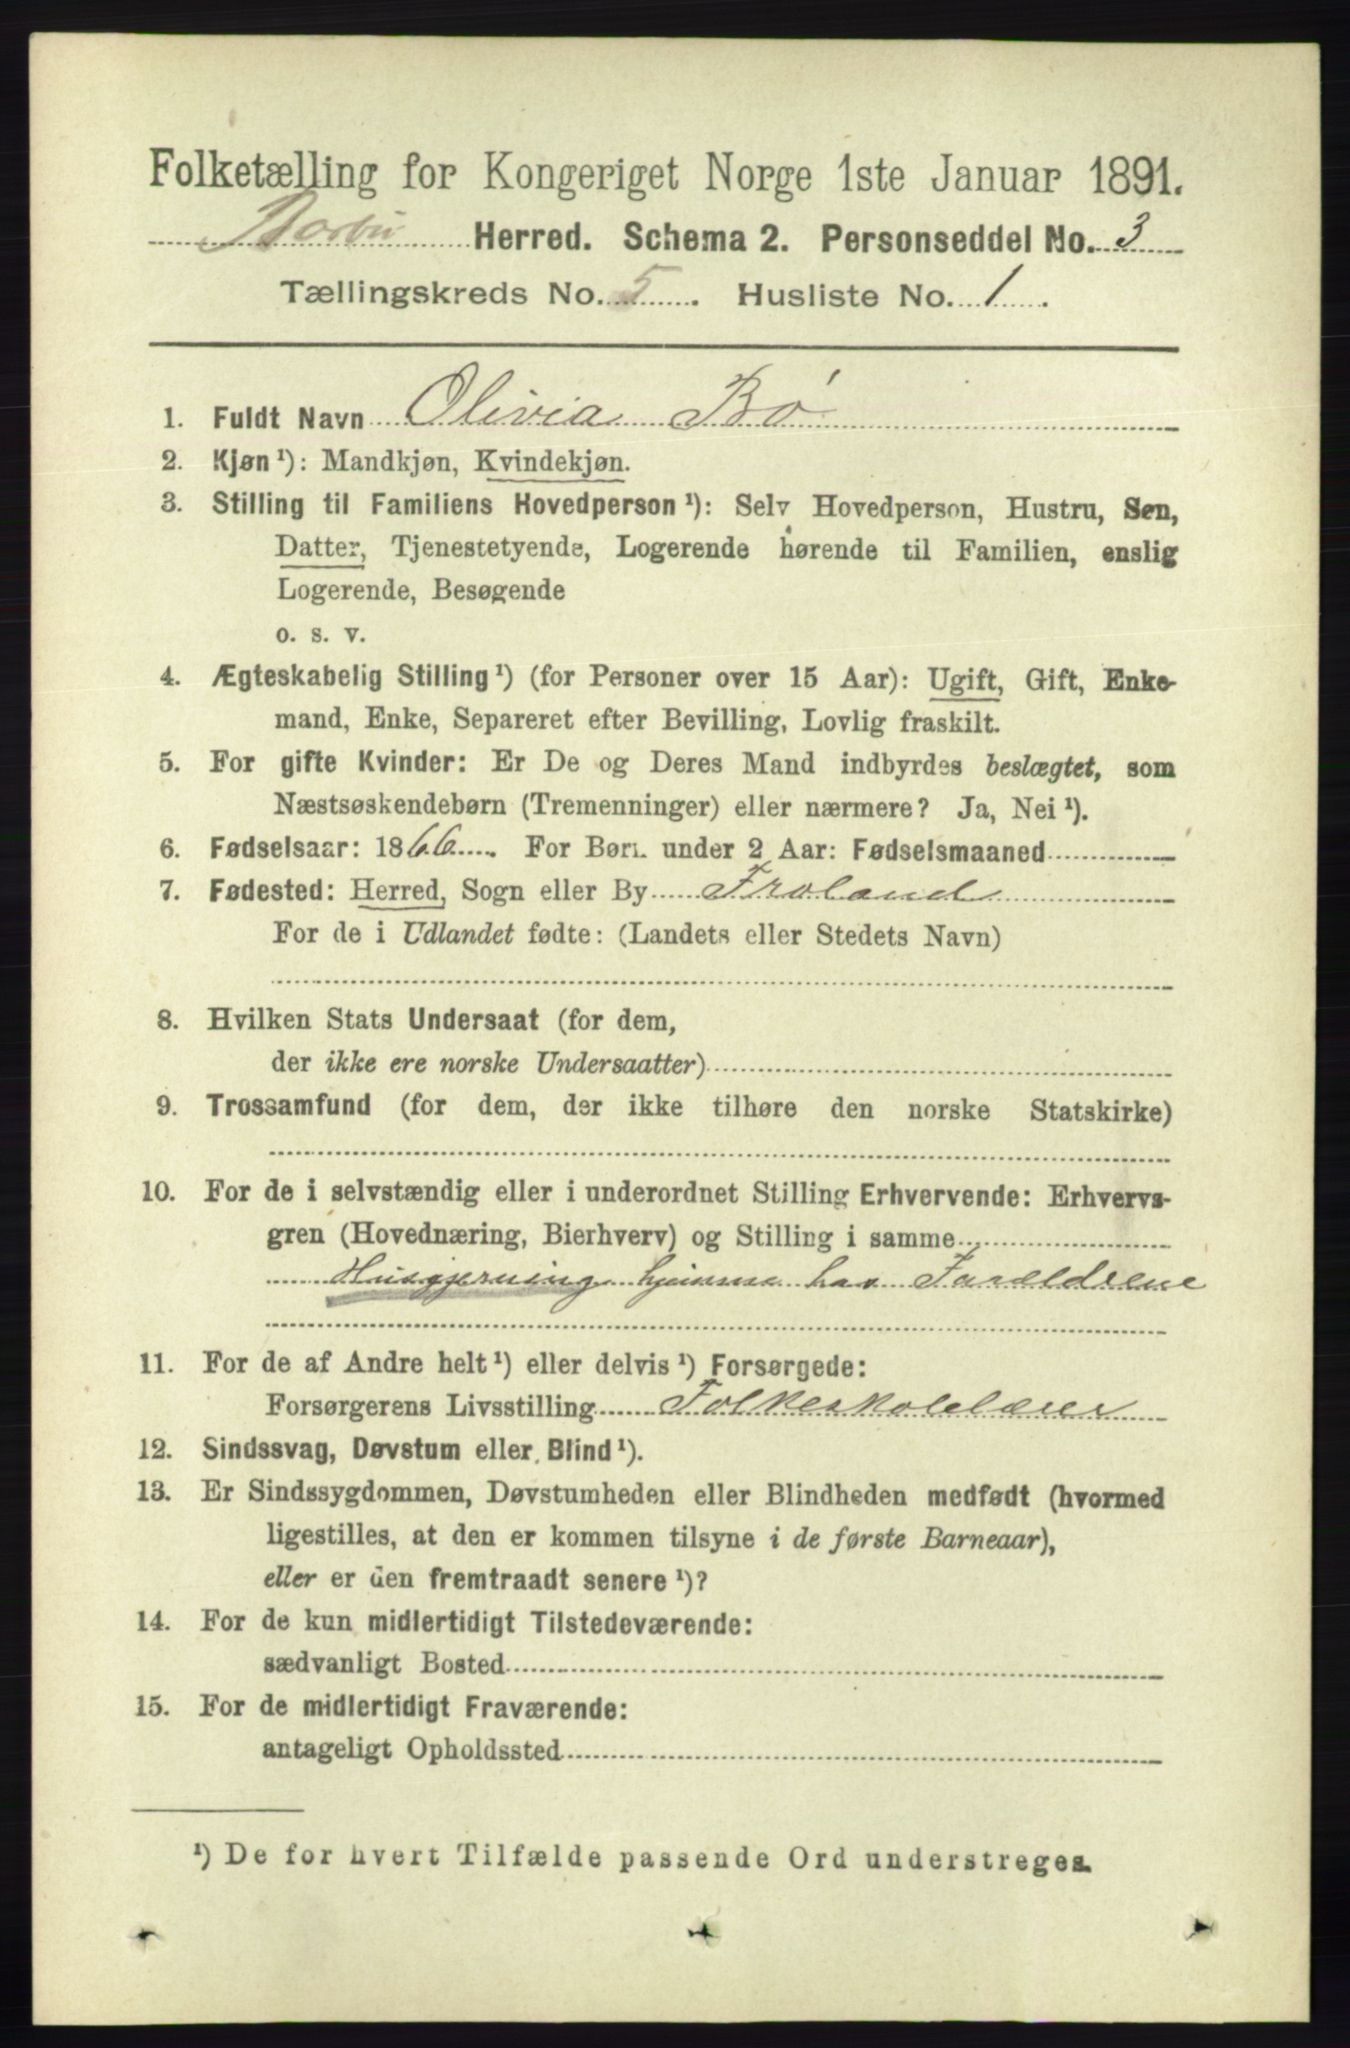 Folketælling for Kongeriget Norge 1ste Januar 1891.
Barbu Herred. Schema 2. Personseddel No. 3
Tællingskreds No. 5. Husliste No. 1.
1. Fuldt Navn Olivia Bø
2. Kjøn ¹): Mandkjøn, Kvindekjøn.
3. Stilling til Familiens Hovedperson ¹): Selv Hovedperson, Hustru, Søn,
Datter, Tjenestetyende, Logerende hørende til Familien, enslig
Logerende, Besøgende
o. s. v.
4. Ægteskabelig Stilling ¹) (for Personer over 15 Aar): Ugift, Gift, Enke-
mand, Enke, Separeret efter Bevilling, Lovlig fraskilt.
5. For gifte Kvinder: Er De og Deres Mand indbyrdes beslægtet, som
Næstsøskendebørn (Tremenninger) eller nærmere? Ja, Nei ¹).
6. Fødselsaar: 1866. For Børn under 2 Aar: Fødselsmaaned
7. Fødested: Herred, Sogn eller By Froland
For de i Udlandet fødte: (Landets eller Stedets Navn)
8. Hvilken Stats Undersaat (for dem,
der ikke ere norske Undersaatter)
9. Trossamfund (for dem, der ikke tilhøre den norske Statskirke)
10. For de i selvstændig eller i underordnet Stilling Erhvervende: Erhvervs-
gren (Hovednæring, Bierhverv) og Stilling i samme
Husgjerning hjemme hos Forældrene
11. For de af Andre helt ¹) eller delvis ¹) Forsørgede:
Forsørgerens Livsstilling Folkeskolelærer
12. Sindssvag, Døvstum eller Blind ¹).
13. Er Sindssygdommen, Døvstumheden eller Blindheden medfødt (hvormed
ligestilles, at den er kommen tilsyne i de første Barneaar),
eller er den fremtraadt senere ¹)?
14. For de kun midlertidigt Tilstedeværende:
sædvanligt Bosted
15. For de midlertidigt Fraværende:
antageligt Opholdssted
¹) De for hvert Tilfælde passende Ord understreges.